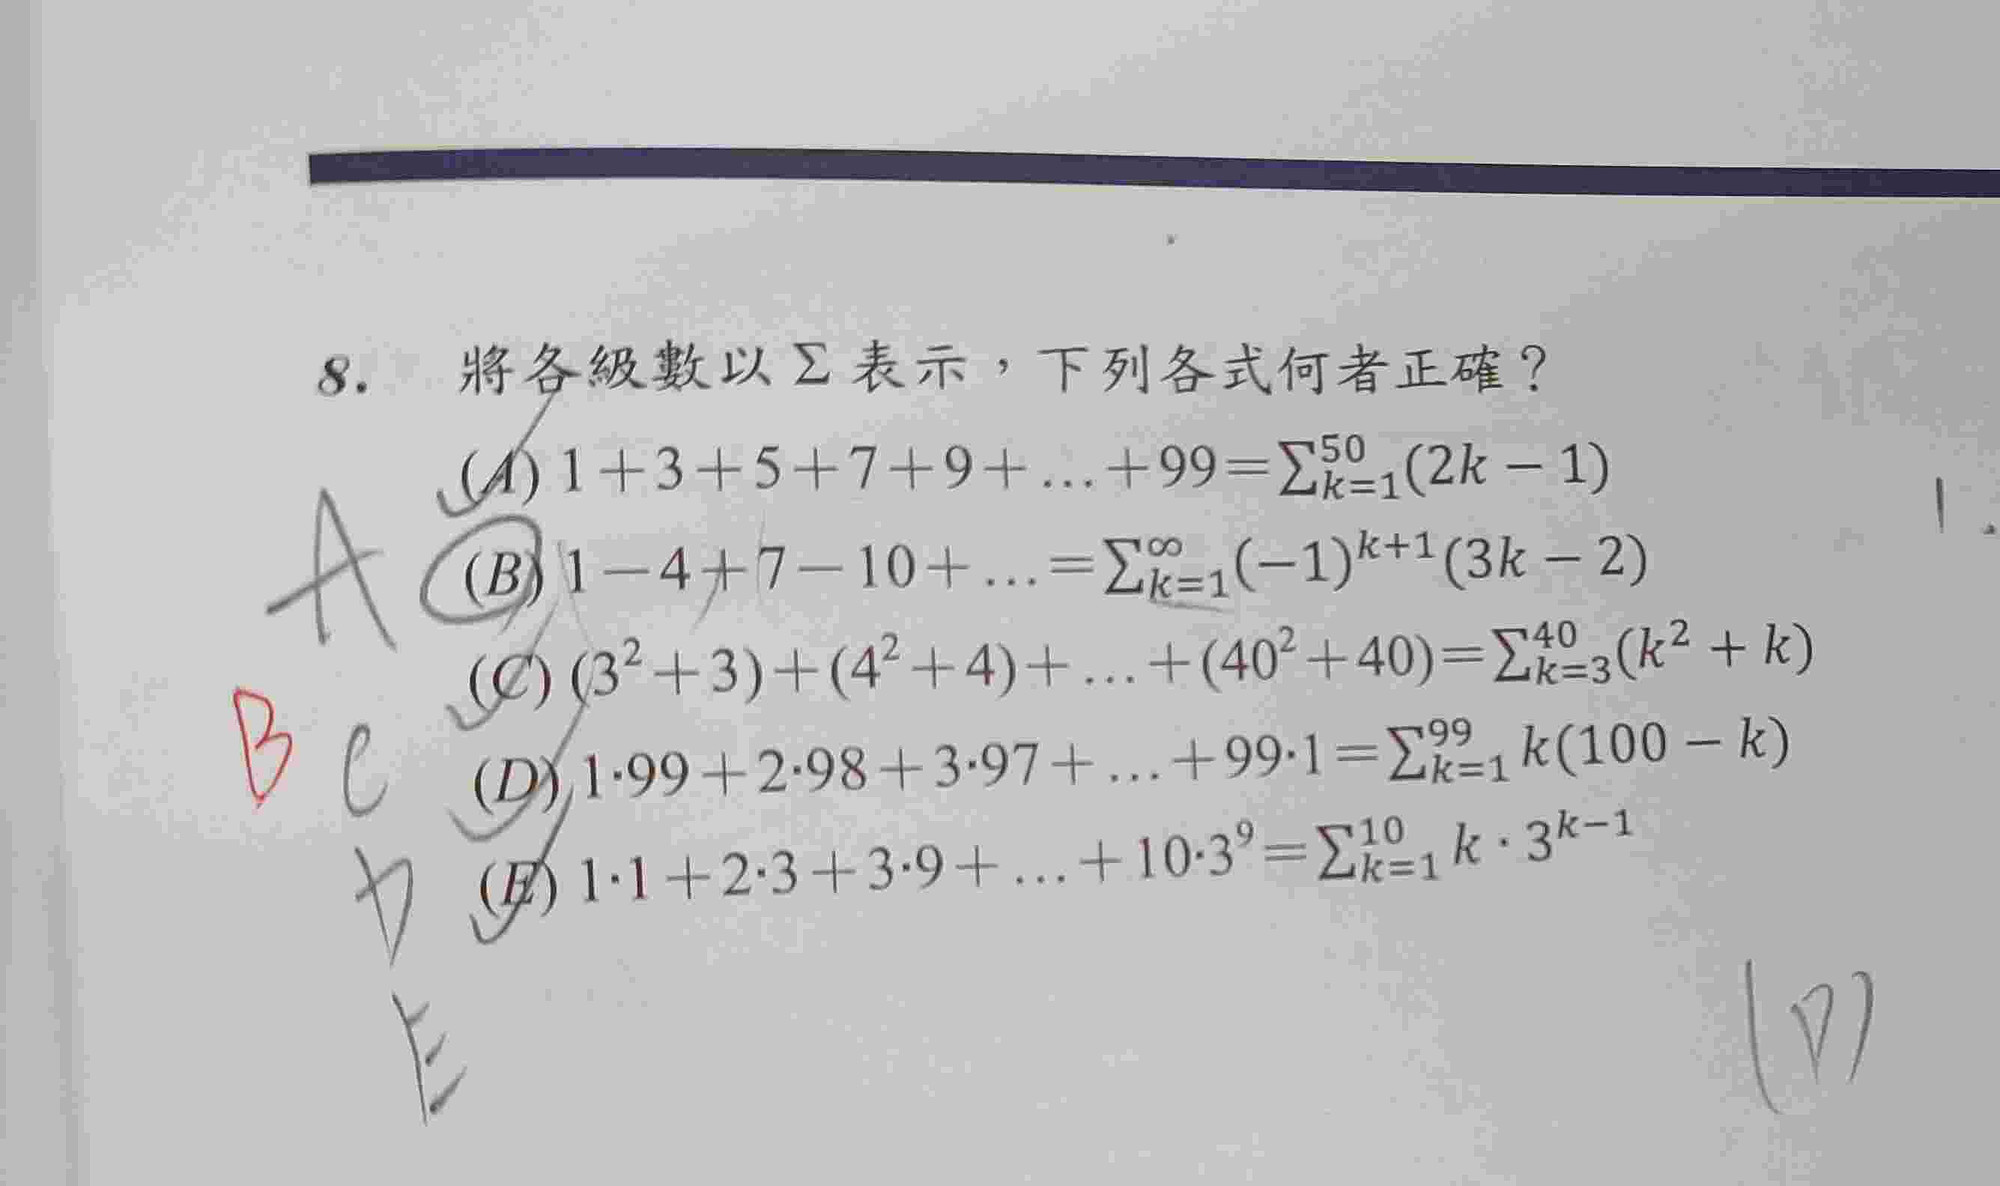 8. 將各級數以 Σ 表示，下列各式何者正確？
(A) 1+3+5+7+9+...+99=∑_{k=1}^{50}(2k − 1)
(B) 1−4+7−10+...=∑_{k=1}^{∞}(−1)^{k+1}(3k − 2)
(C) (3²+3)+(4²+4)+...+(40²+40)=∑_{k=3}^{40}(k² + k)
(D) 1·99+2·98+3·97+...+99·1=∑_{k=1}^{99} k(100 − k)
(E) 1·1+2·3+3·9+...+10·3⁹=∑_{k=1}^{10} k · 3^{k−1}
A
B C
D
E
1.
(D)